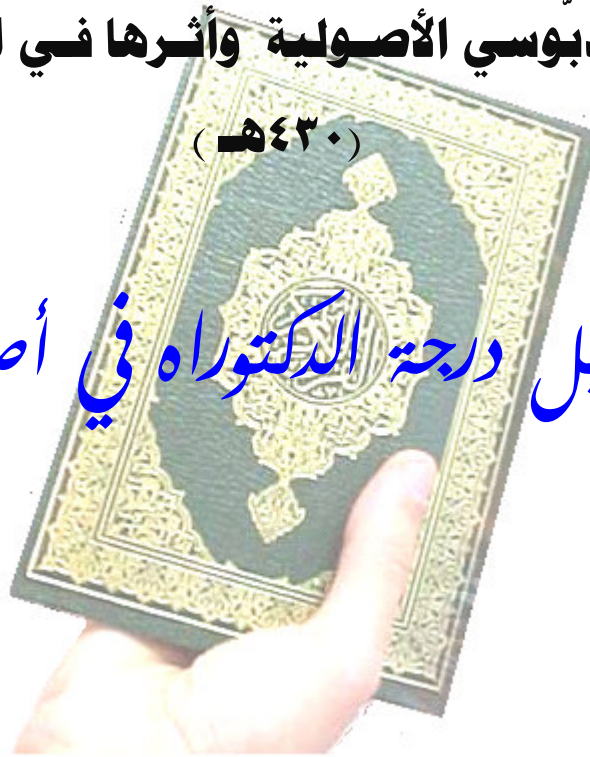 دبّوسي الأصولية وأثرها في ا
(٤٣٠هـ)
ل درجة الدكتوراه في أص